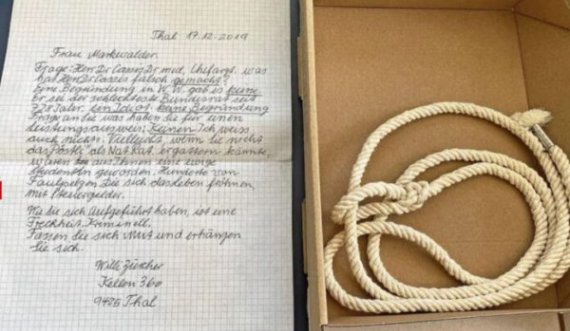 Thal 17.12.2019
Frau Markwalder.
Frage: Herr Dr Cassis Dr med, Chefarzt, was
hat Herr Dr Cassis falsch gemacht?
Eine Begründung in W.W. gab es keine
Er sei der schlechteste Bundesrat seit
Jahren. ein Idiot. keine Begründung
Frage an Sie was haben Sie für einen
Leistungsausweis. Keinen Ich weiss
auch nichts. Vielleicht, wenn Sie nicht
das Pöstli als Nat. Rat ergattern könnte
wären aus Ihnen eine ewige
Studentin geworden. Hunderte von
Faulpelzen die sich das Leben fröhnen
mit Steuergelder.
Wie Sie sich Aufgeführt haben, ist eine
Frechheit. Kriminell.
Fassen Sie sich Mut und erhängen
Sie sich.
Willi
Kellen 360
9425 Thal